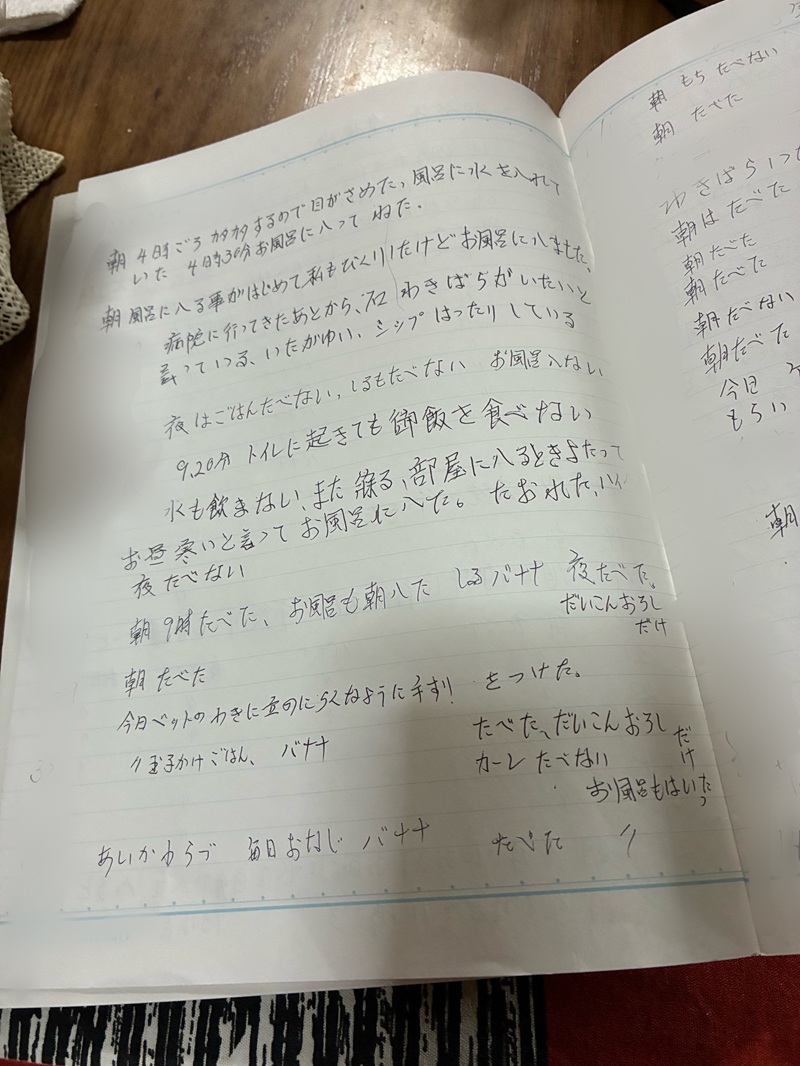 朝 4時ごろ カタカタするので目がさめた、風呂に水を入れて
いた 4時30分お風呂に入って ねた.
朝 風呂に入る事がはじめて私もびっくりしたけどお風呂に入ました。
病院に行ってきたあとから、右 わきばらがいたいと
言っている、いたがゆい、シップ はったり している
夜はごはんたべない、しるもたべない お風呂入ない
9,20分 トイレに起きても御飯を食べない
水も飲まない、また寝る、部屋に入るとき
お昼 寒いと言って お風呂に入た。 たおれた、
夜 たべない
朝 9時たべた、お風呂も朝入た しるバナナ 夜たべた。
だいこんおろし
だけ
朝 たべた
今日ベットのわきに立のにらくなように手すり をつけた。
〃 玉子かけごはん、 バナナ たべた、だいこんおろし
だけ
カーレ たべない
お風呂もはいたっ
あいかわらづ 毎日おなじ バナナ たべた 〃
朝 もち たべない
朝 たべた
わきばら
朝は たべた
朝 たべた
朝 たべた
朝 たべない
朝 たべた
今日
もらい
朝